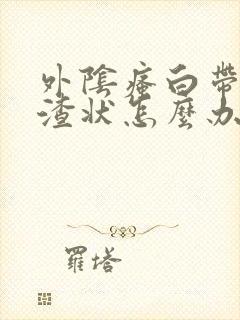 外陰瘙白帶
渣狀怎麼办
羅塔